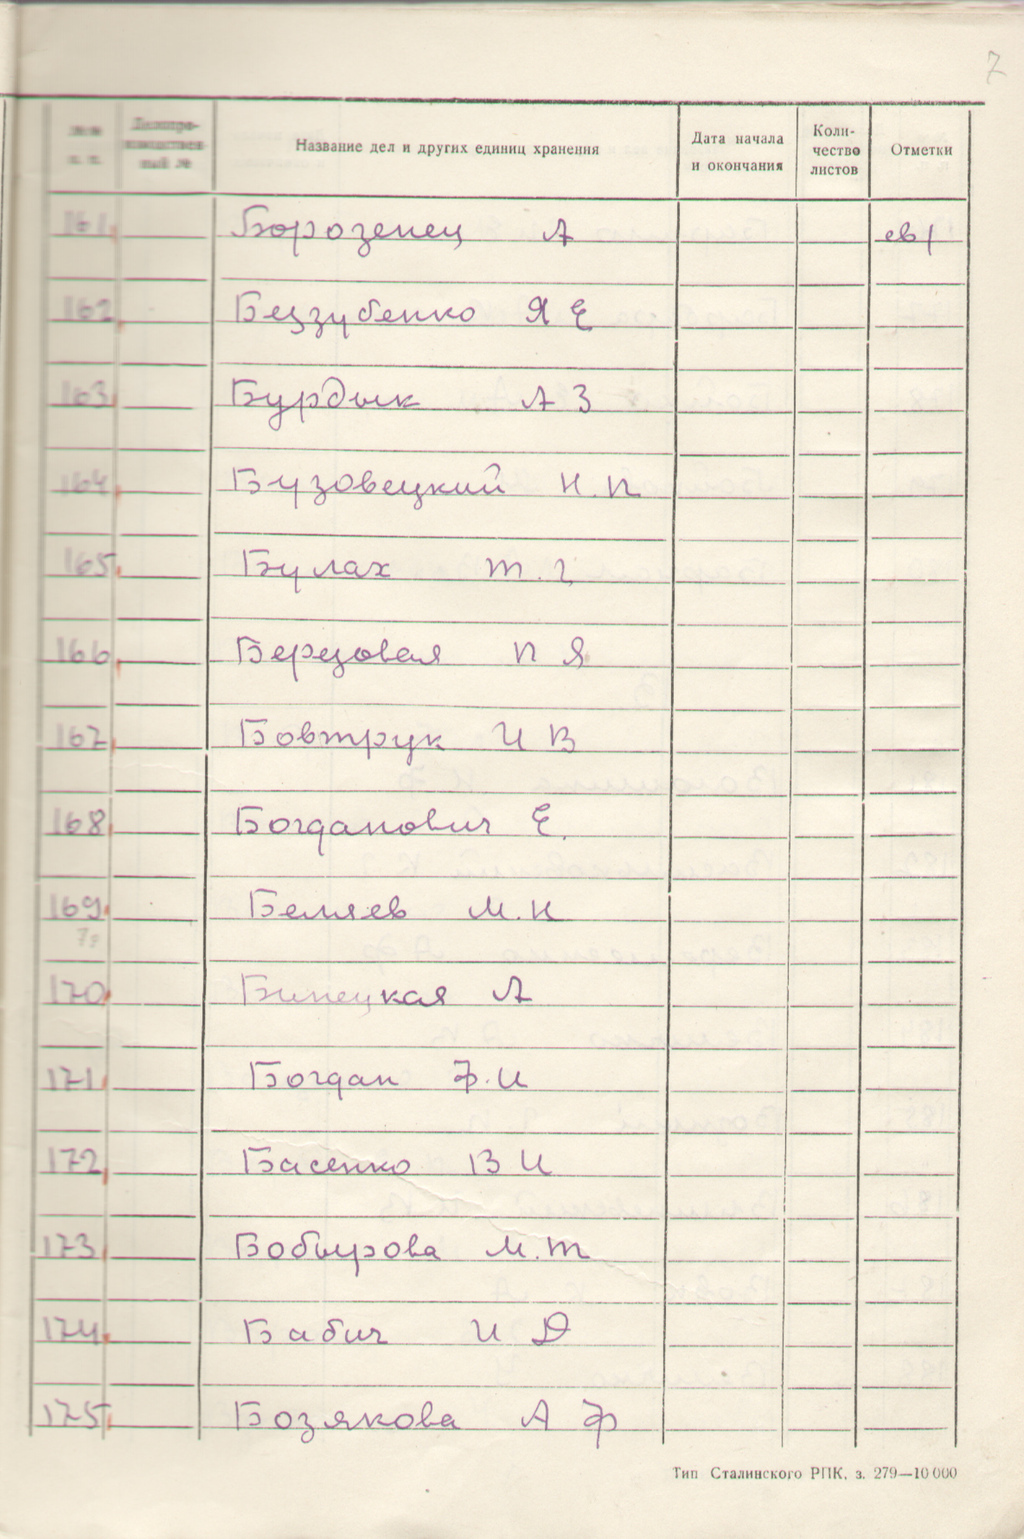 7
№№ п. п.
Делопро-
изводствен-
ный №
Название дел и других единиц хранения
Дата начала
и окончания
Коли-
чество
листов
Отметки
161 Борозенец А ев/
162 Беззубенко Я Е
163 Бурдык А З
164 Бузовецкий Н.П
165 Булах Т.Г
166 Березовая П Я
167 Бовтрук И В
168 Богданович Е.
169 Беляев М.Н
170 Билецкая А
171 Богдан Ф.И
172 Басенко В И
173 Бобырова М.Т
174 Бабич И Д
175 Бозякова А Ф
Тип Сталинского РПК. з. 279—10 000